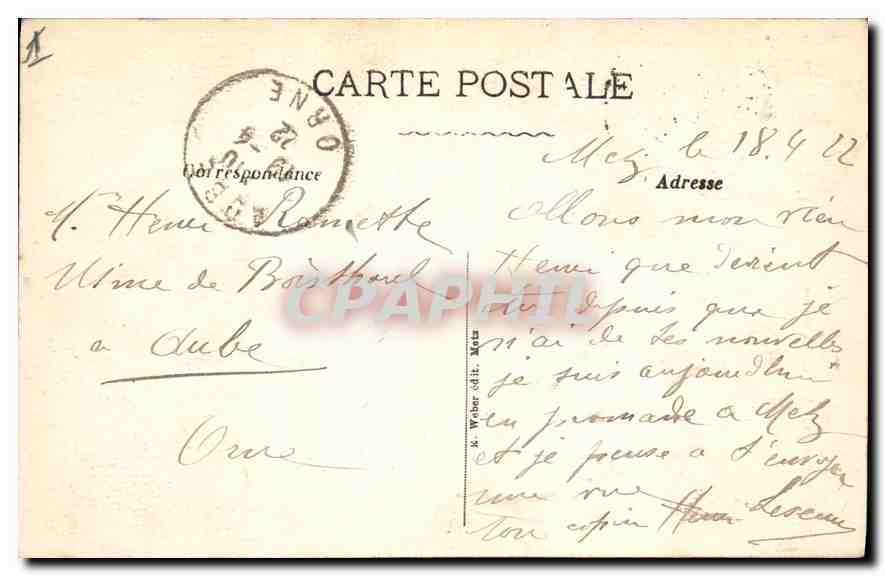 CARTE POSTALE
Correspondance
Adresse
ORNE
19 -4
22
Metz le 18.4 22
Mr Henri Ramette
Usine de Boisthorel
a Aube
Orne
Allons mon vieu
Henri que devient
tu depuis que je
n'ai de tes nouvelles
je suis aujourdhui
en promade a Metz
et je pense a t'envoyer
une vue
ton copin Henri
K. Weber édit. Metz
CPAPHIL
1